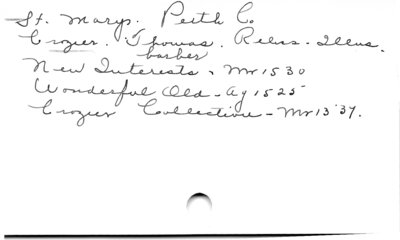 St. Marys. Perth Co.
Crozier. Thomas. Relns - Illus.
barber
New Interests - Mr 15 30
Wonderful Old - Ag 15 25
Crozier Collection - Mr 13 '37.